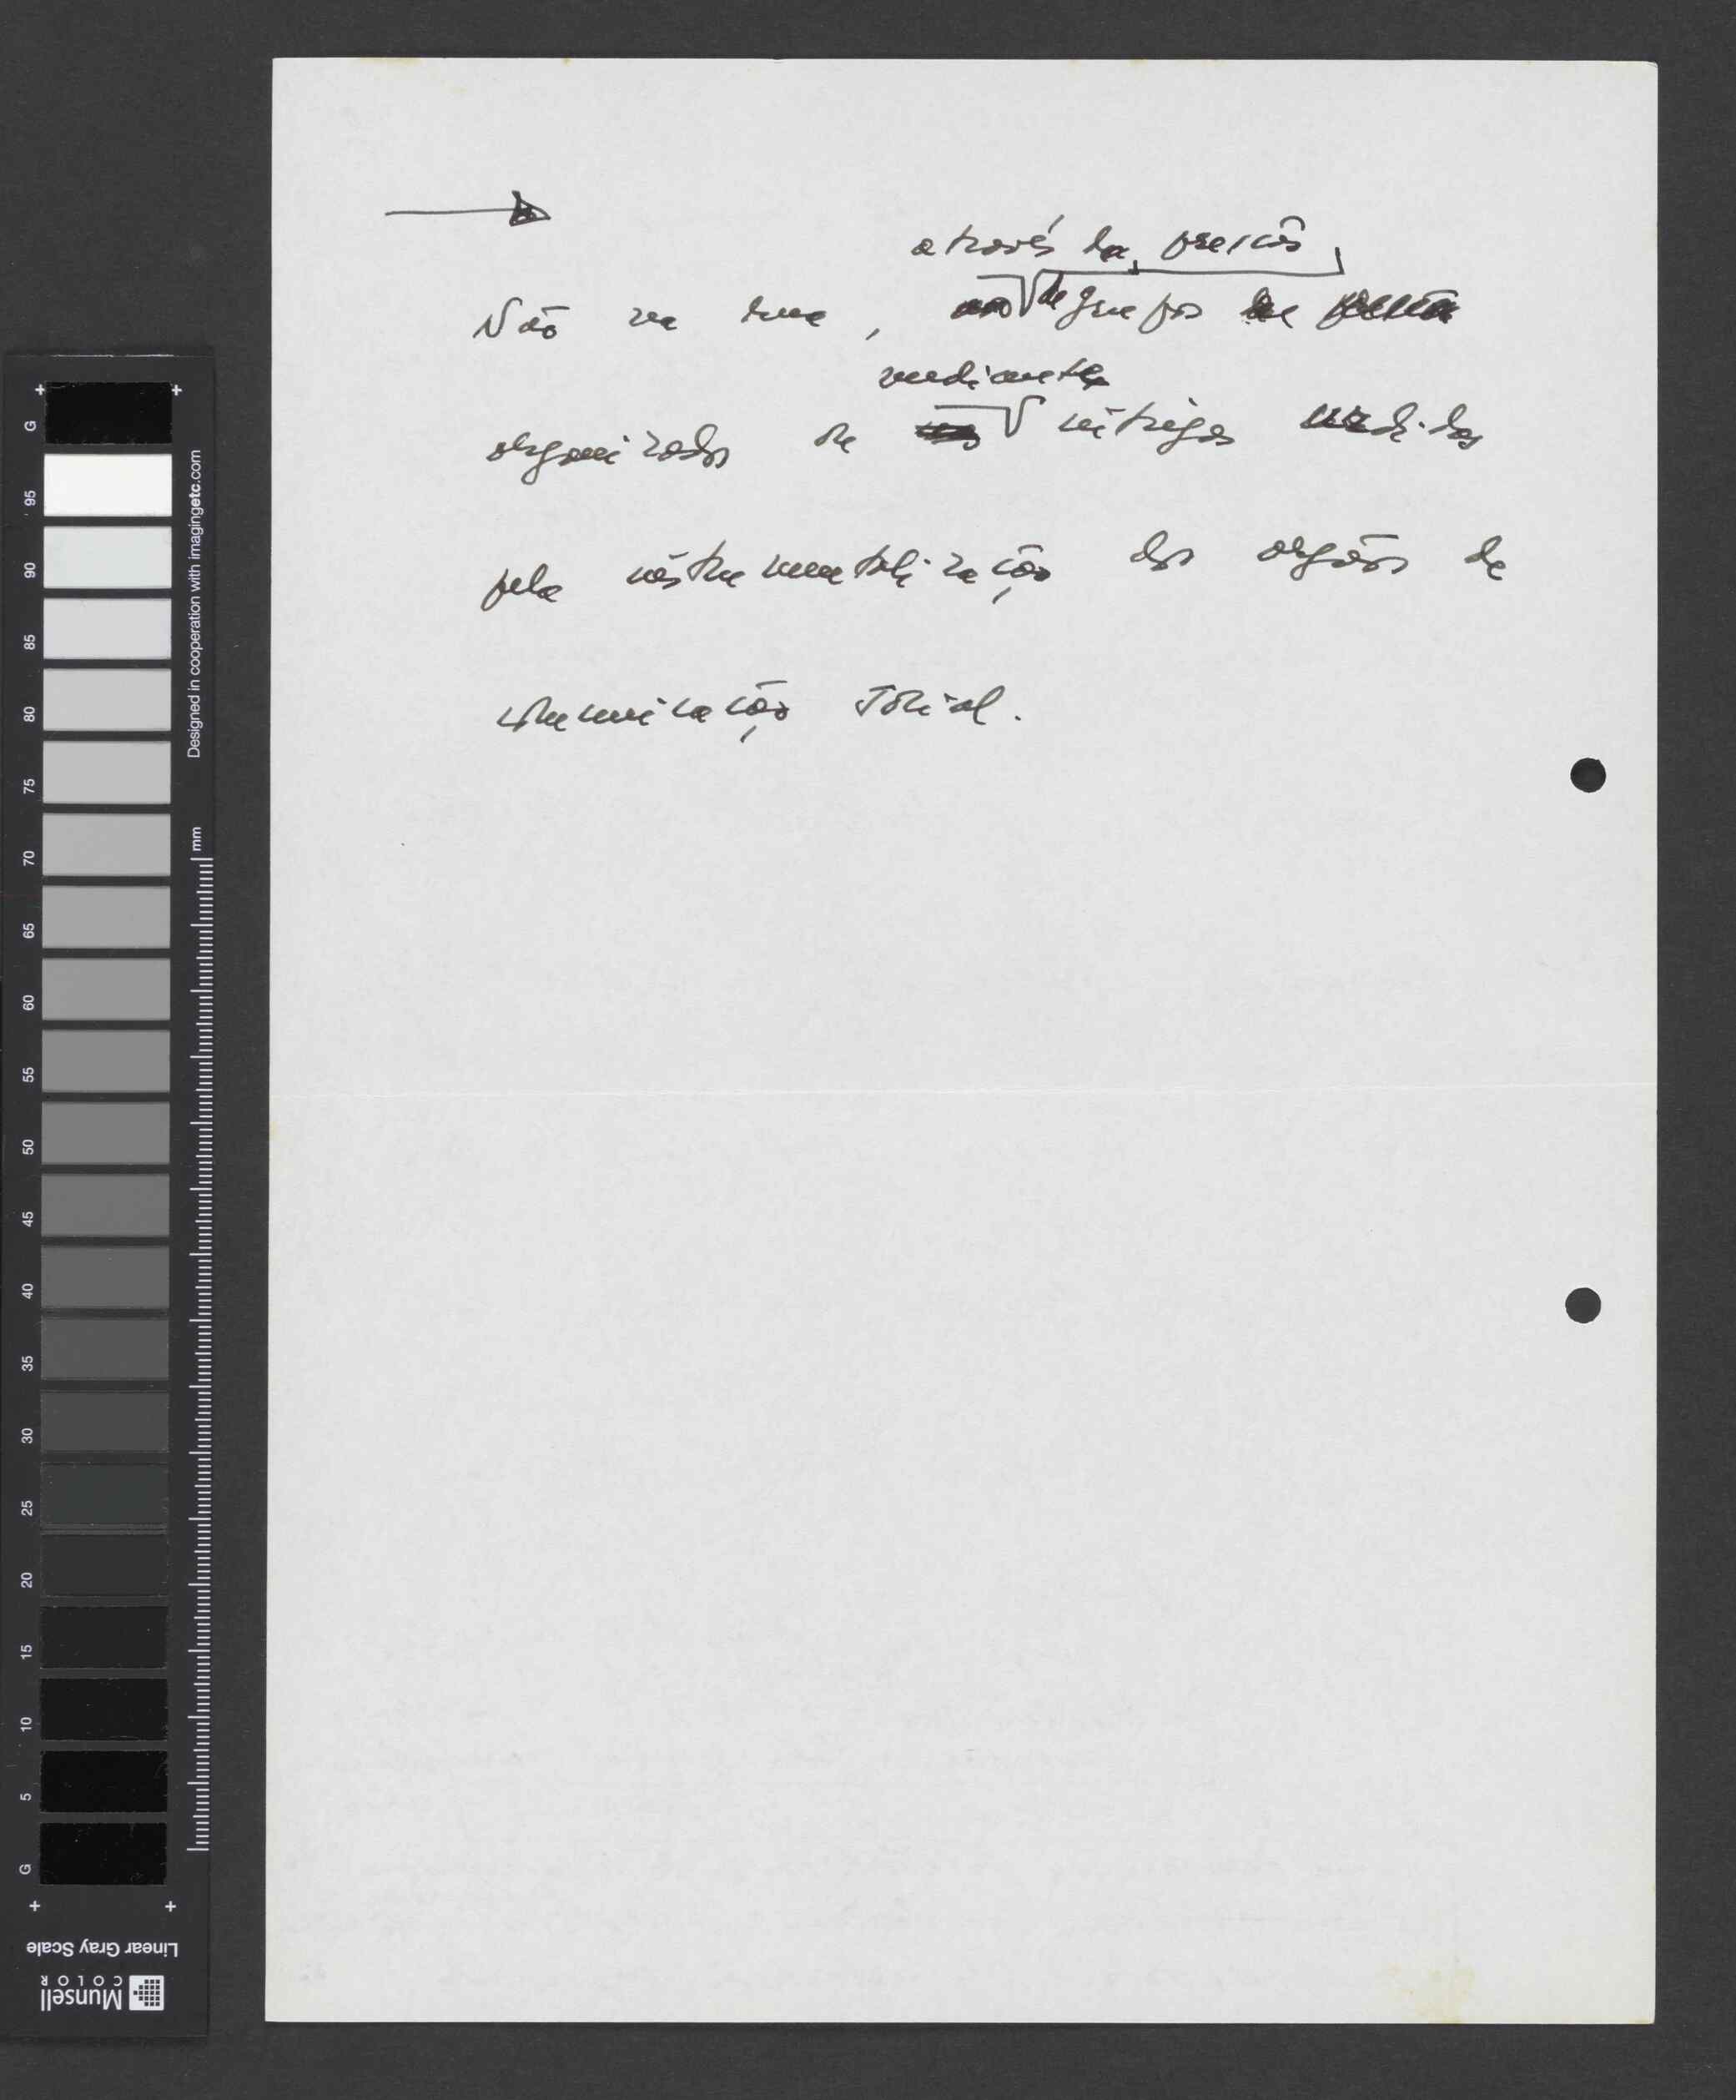 através da pressão
Não na rua, de grupos
mediante
organizados ou intrigas urdidas
pela instrumentalização dos orgãos de
comunicação social.
G
95
90
85
80
75
70
65
60
55
50
45
40
35
30
25
20
15
10
5
G
Designed in cooperation with imagingetc.com
mm
Linear Gray Scale
Munsell
COLOR